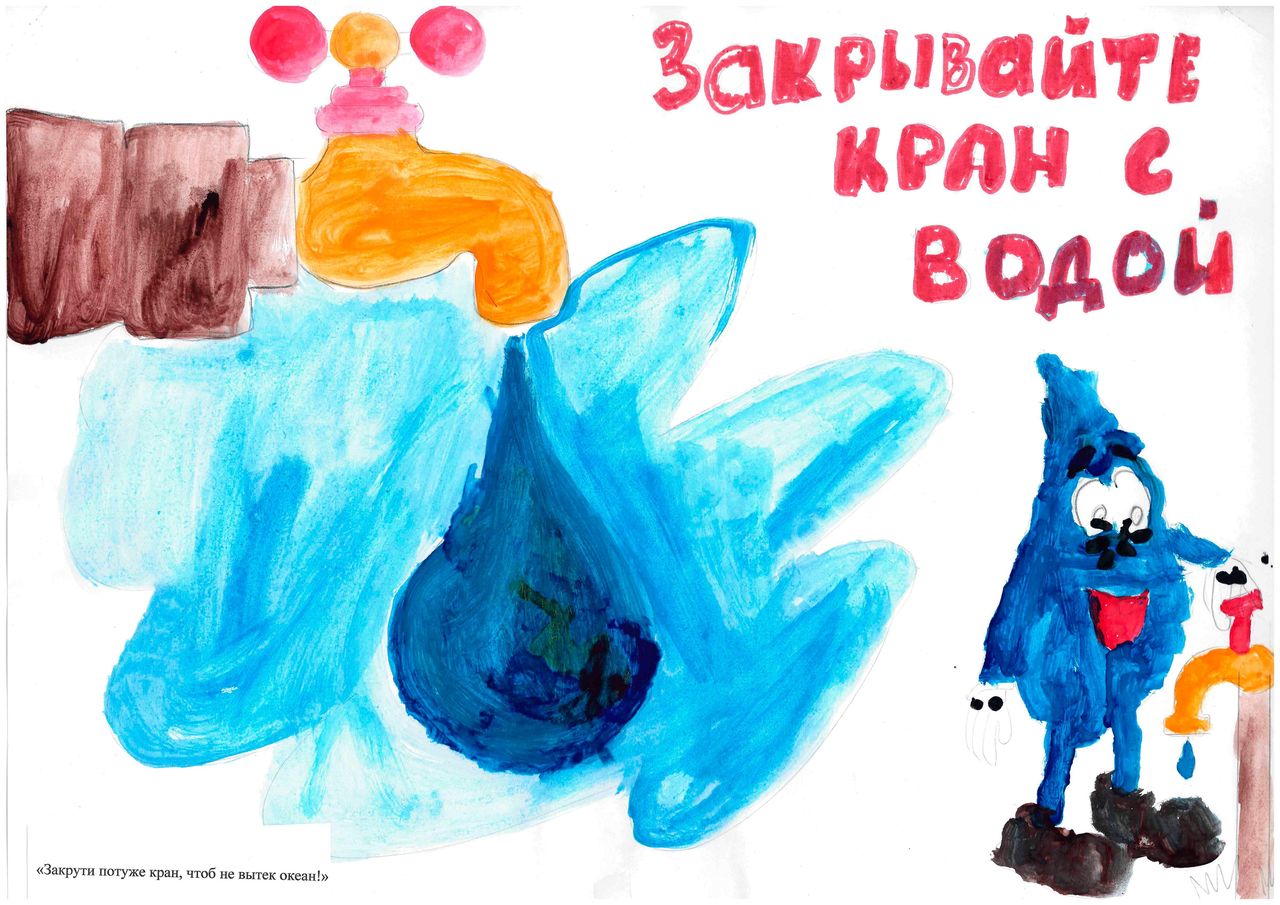 Закрывайте
кран с
водой
«Закрути потуже кран, чтоб не вытек океан!»